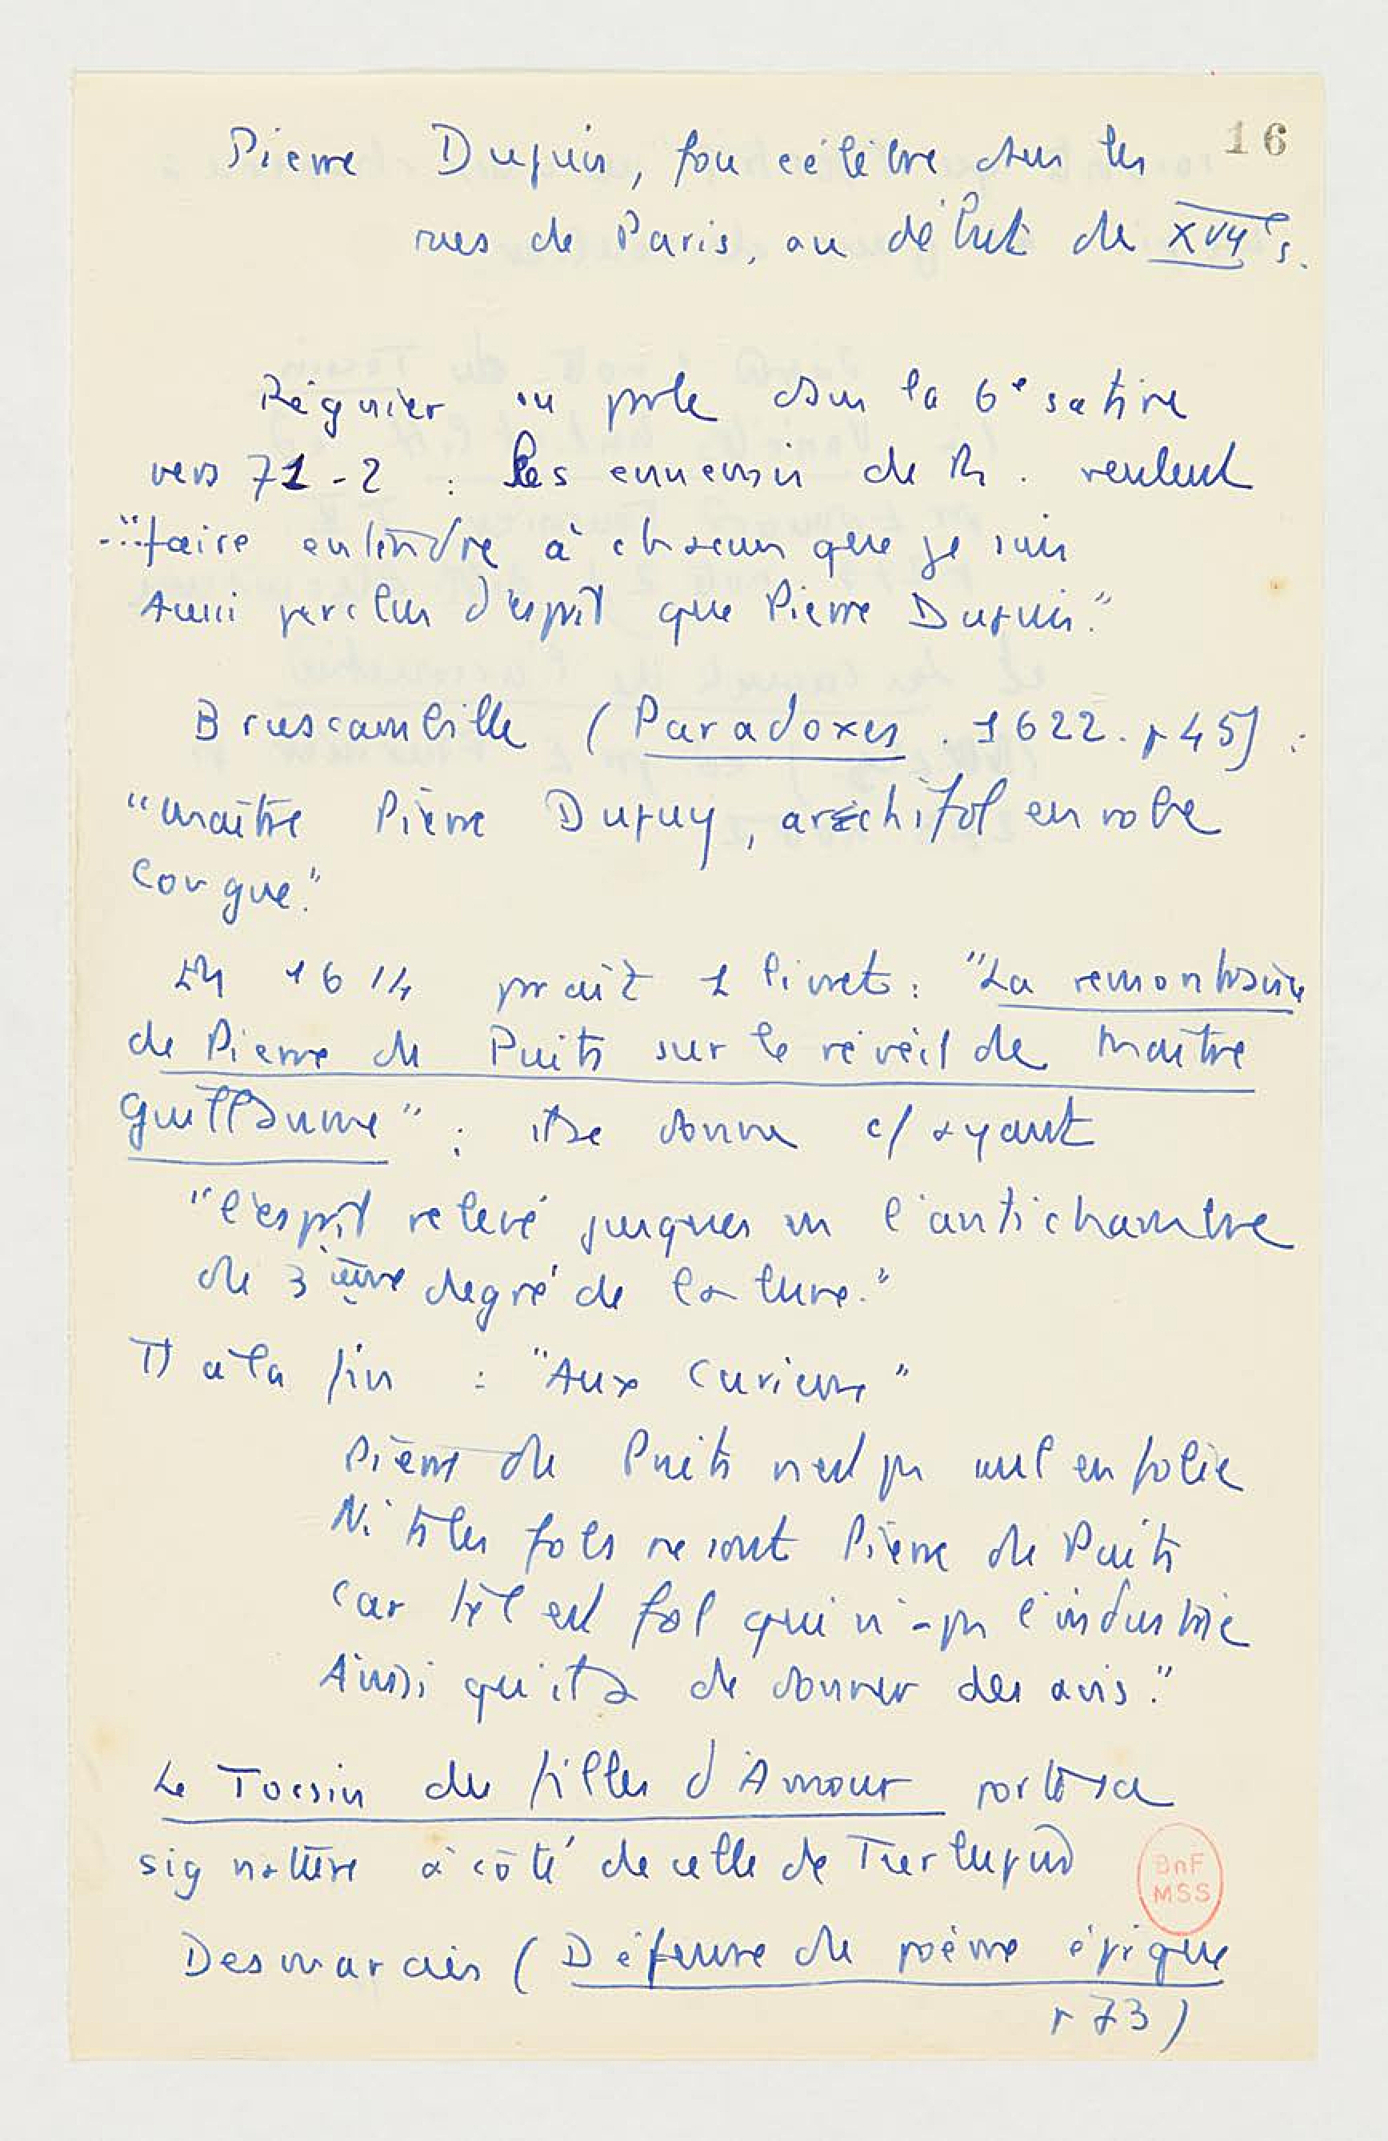 16
Pierre Dupuis, fou célèbre dans les
rues de Paris, au début du XVIIe s.
Régnier en parle dans la 6e satire
vers 71-2 : les ennemis de R. veulent
..."faire entendre à chacun que je suis
Aussi perclus d'esprit que Pierre Dupuis."
Bruscambille (Paradoxes. 1622. p 45) :
"maître Pierre Dupuy, archifol en robe
longue."
En 1614 paraît 1 livret : "La remontrance
de Pierre du Puits sur le réveil de maître
Guillaume" ; il se donne c/ ayant
"l'esprit relevé jusques en l'antichambre
du 3ième degré de la lune."
Et à la fin : "Aux Curieux"
Pierre du Puits n'est pas seul en folie
Ni ts les fols ne sont Pierre du Puits
Car tel est fol qui n'a pas l'industrie
Ainsi qu'il a de donner des avis."
Le Tocsin des filles d'Amour porte sa
signature à côté de celle de Turlupin
Desmarais (Défense du poème épique
p 73)
BnF
MSS